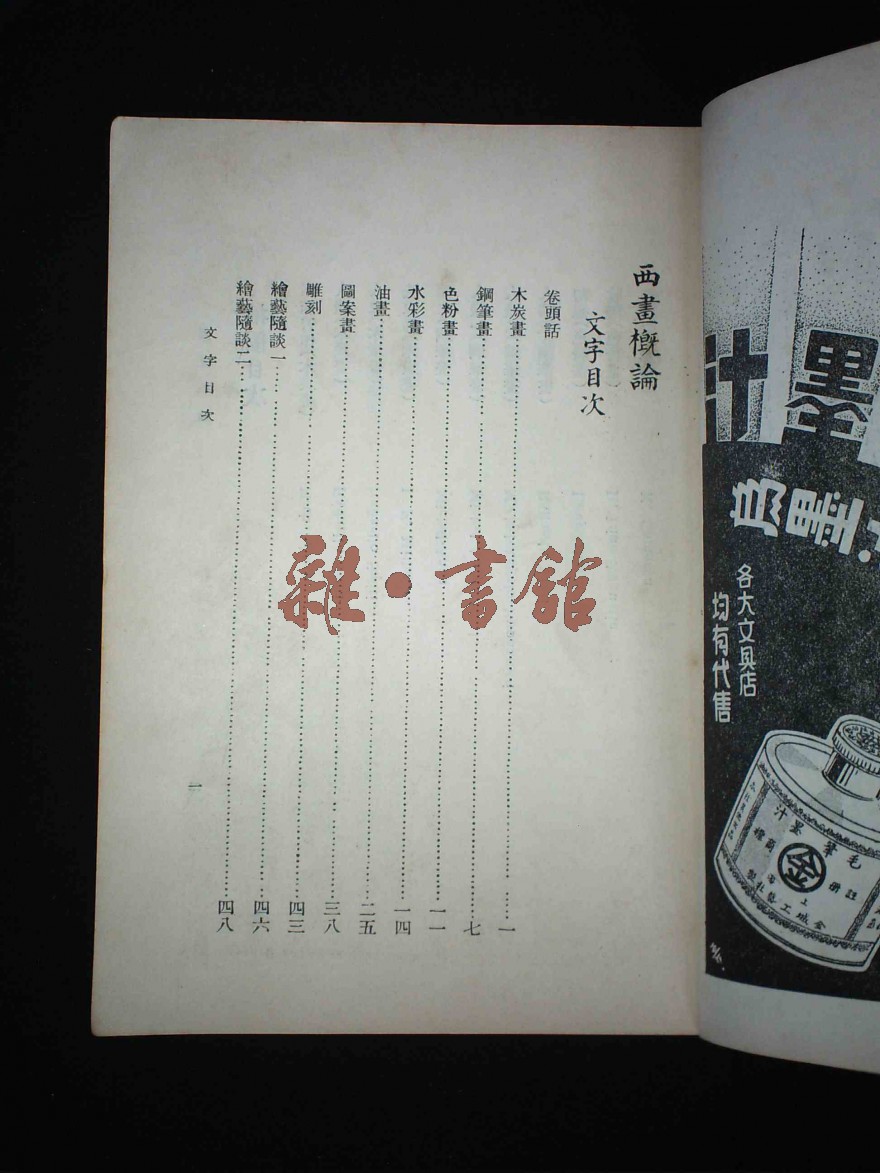 西畫概論
文字目次
卷頭話
木炭畫……一
鋼筆畫……七
色粉畫……一一
水彩畫……一四
油畫……二五
圖案畫……三八
雕刻……四三
繪藝隨談一……四六
繪藝隨談二……四八
文字目次
一
雜·書館
墨汁
各大文具店
均有代售
毛筆墨汁
註冊
商標
金
上
金城工藝社製